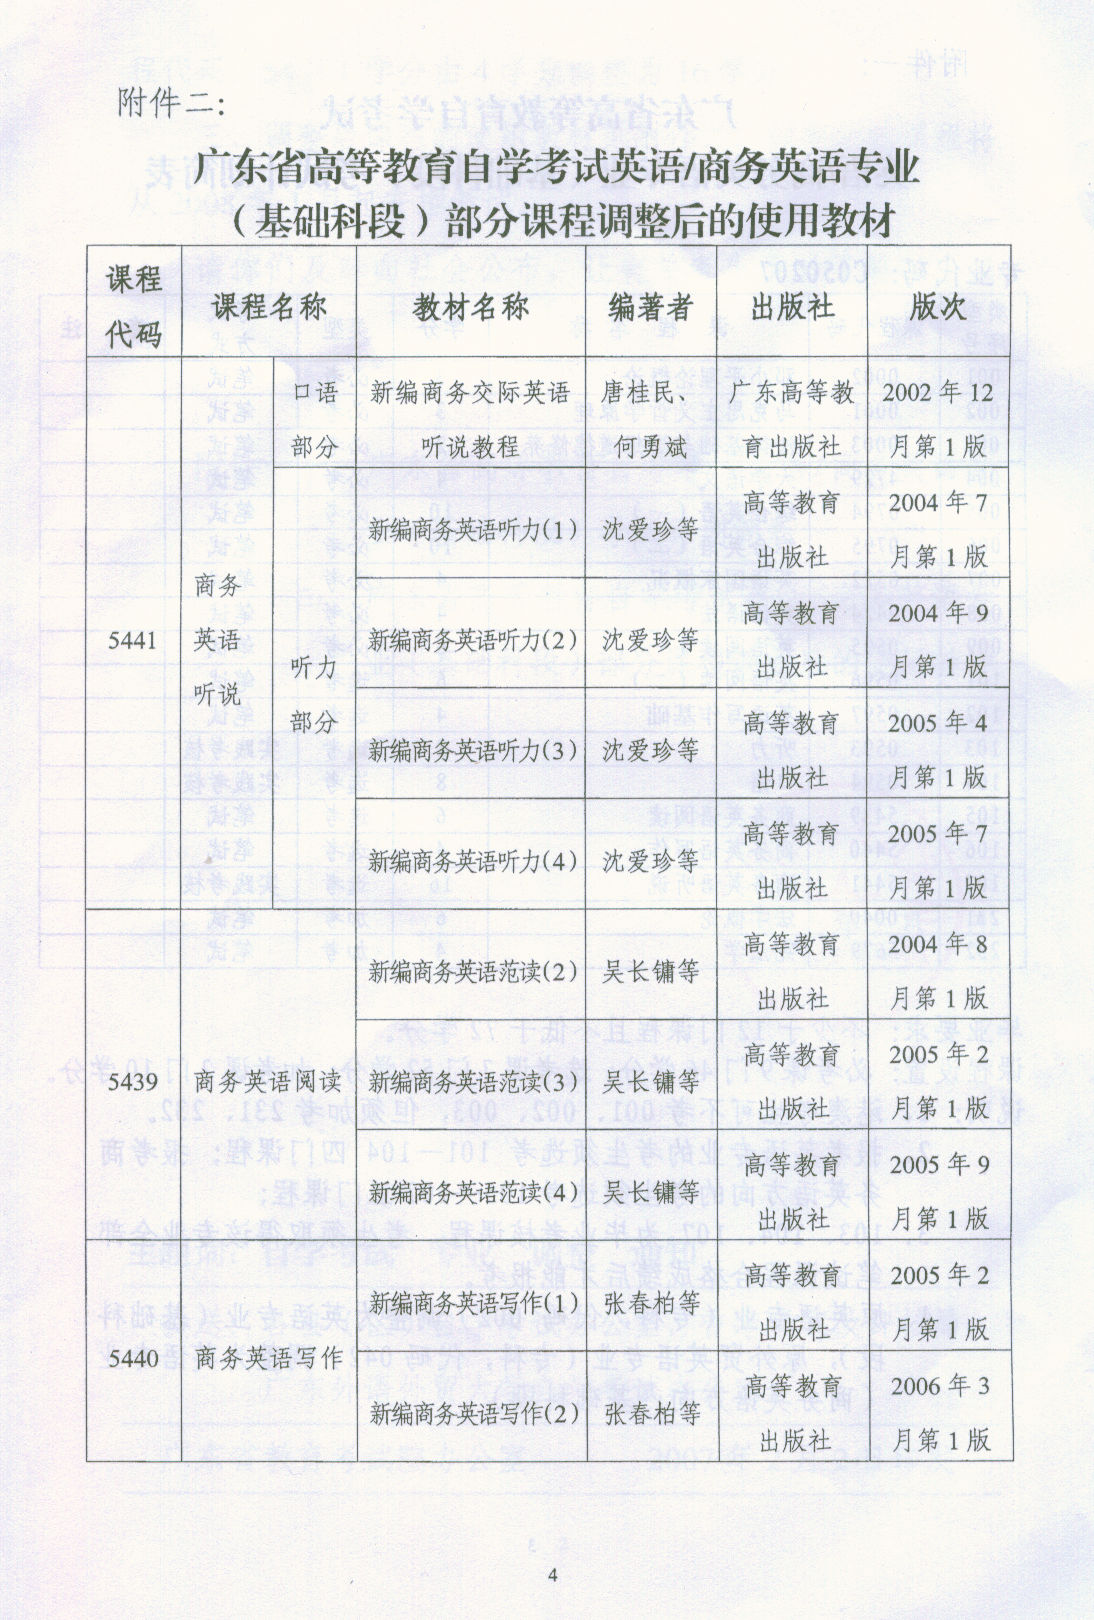 附件二:
广东省高等教育自学考试英语/商务英语专业
（基础科段）部分课程调整后的使用教材
课程代码 课程名称 教材名称 编著者 出版社 版次
5441 商务英语听说 口语部分 新编商务交际英语听说教程 唐桂民、何勇斌 广东高等教育出版社 2002年12月第1版
听力部分 新编商务英语听力(1) 沈爱珍等 高等教育出版社 2004年7月第1版
新编商务英语听力(2) 沈爱珍等 高等教育出版社 2004年9月第1版
新编商务英语听力(3) 沈爱珍等 高等教育出版社 2005年4月第1版
新编商务英语听力(4) 沈爱珍等 高等教育出版社 2005年7月第1版
5439 商务英语阅读 新编商务英语范读(2) 吴长镛等 高等教育出版社 2004年8月第1版
新编商务英语范读(3) 吴长镛等 高等教育出版社 2005年2月第1版
新编商务英语范读(4) 吴长镛等 高等教育出版社 2005年9月第1版
5440 商务英语写作 新编商务英语写作(1) 张春柏等 高等教育出版社 2005年2月第1版
新编商务英语写作(2) 张春柏等 高等教育出版社 2006年3月第1版
4